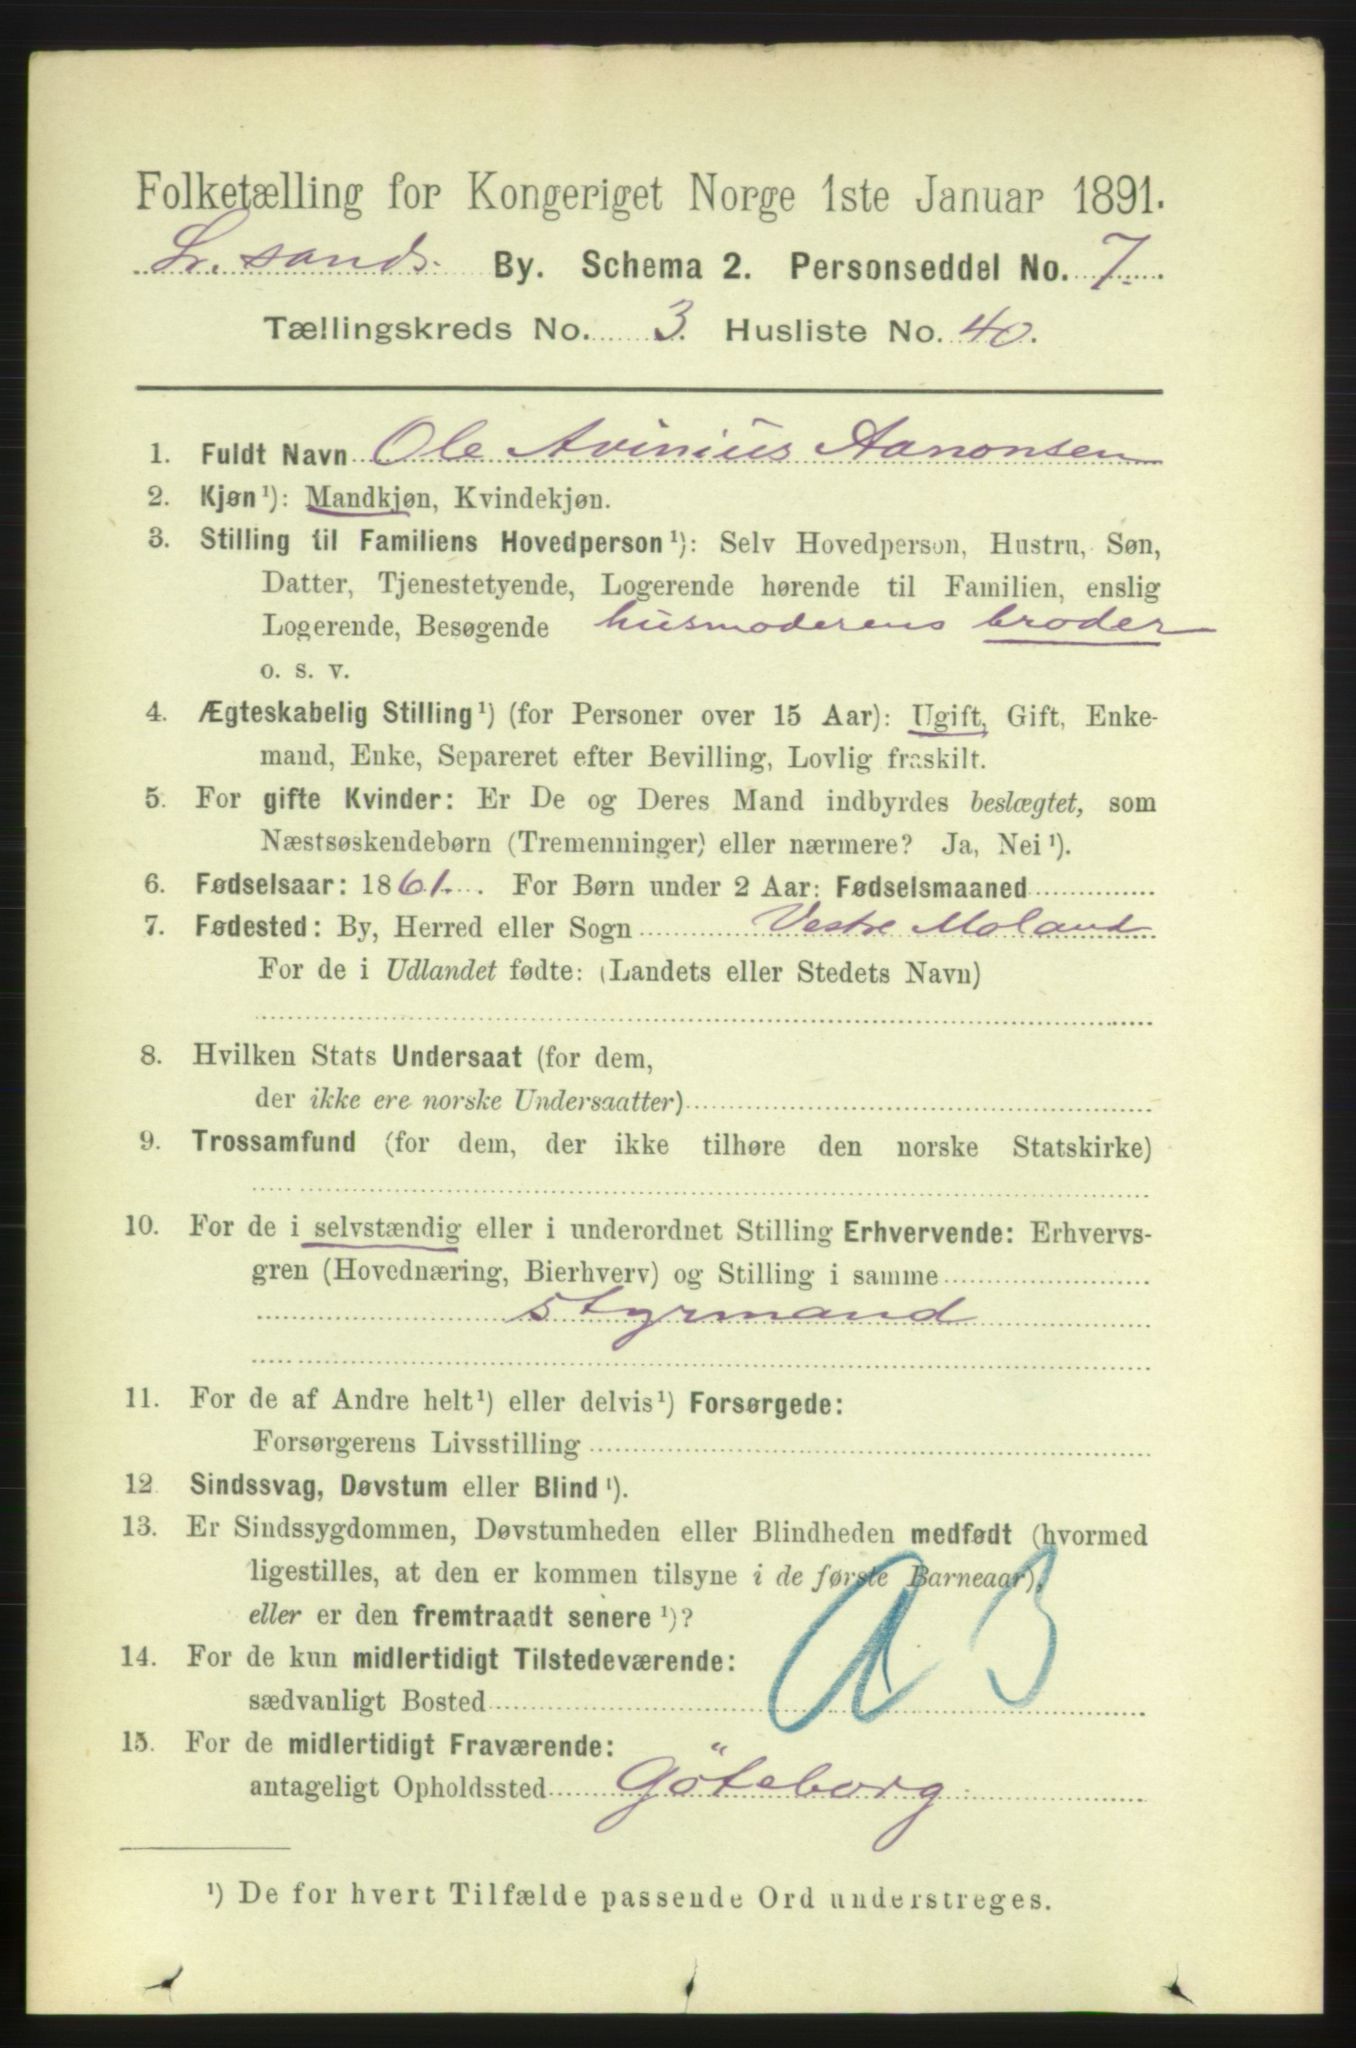 Folketælling for Kongeriget Norge 1ste Januar 1891.
L. sands. By. Schema 2. Personseddel No. 7.
Tællingskreds No. 3. Husliste No. 40.
1. Fuldt Navn Ole Avinius Aanonsen
2. Kjøn¹): Mandkjøn, Kvindekjøn.
3. Stilling til Familiens Hovedperson¹): Selv Hovedperson, Hustru, Søn,
Datter, Tjenestetyende, Logerende hørende til Familien, enslig
Logerende, Besøgende husmoderens broder
o. s. v.
4. Ægteskabelig Stilling¹) (for Personer over 15 Aar): Ugift, Gift, Enke-
mand, Enke, Separeret efter Bevilling, Lovlig fraskilt.
5. For gifte Kvinder: Er De og Deres Mand indbyrdes beslægtet, som
Næstsøskendebørn (Tremenninger) eller nærmere? Ja, Nei¹).
6. Fødselsaar: 1861. For Børn under 2 Aar: Fødselsmaaned
7. Fødested: By, Herred eller Sogn Vestre Moland
For de i Udlandet fødte: (Landets eller Stedets Navn)
8. Hvilken Stats Undersaat (for dem,
der ikke ere norske Undersaatter)
9. Trossamfund (for dem, der ikke tilhøre den norske Statskirke)
10. For de i selvstændig eller i underordnet Stilling Erhvervende: Erhvervs-
gren (Hovednæring, Bierhverv) og Stilling i samme
styrmand
11. For de af Andre helt¹) eller delvis¹) Forsørgede:
Forsørgerens Livsstilling
12. Sindssvag, Døvstum eller Blind¹).
13. Er Sindssygdommen, Døvstumheden eller Blindheden medfødt (hvormed
ligestilles, at den er kommen tilsyne i de første Barneaar),
eller er den fremtraadt senere¹)?
14. For de kun midlertidigt Tilstedeværende:
sædvanligt Bosted
15. For de midlertidigt Fraværende:
antageligt Opholdssted Göteborg.
¹) De for hvert Tilfælde passende Ord understreges.